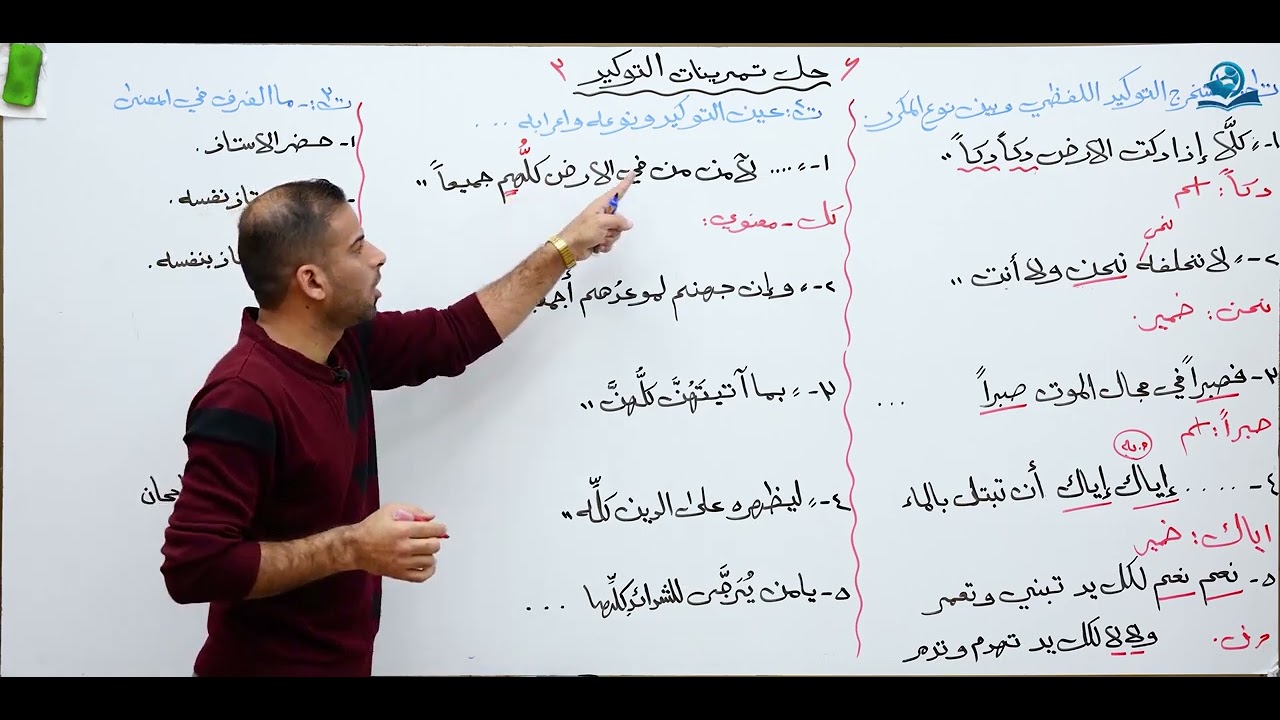 حل تمرينات التوكيد ٢
التوكيد اللفظي وبين نوع المكرر.
١- " كلَّا إذا دكت الارض دكاً دكاً "
دكاً : اسم
نحن
٢- " لا نخلفه نحن ولا أنت "
نحن : ضمير.
٣- فصبراً في مجال الموت صبراً ...
صبراً : اسم
م.به
٤- .... إياك إياك أن تبتل بالماء
اياك : ضمير
٥- نعم نعم لكل يد تبني وتعمر
ولا لا لكل يد تهدم وتدمر
حرف.
ت٤: عين التوكيد ونوعه واعرابه ...
١- " .... لآمن من في الارض كلُّهم جميعاً "
كل - معنوي :
٢- " وإن جهنم لموعدُهم
٣- " بما آتيتَهُنَّ كلُّهنَّ "
٤- " ليظهره على الدين كلِّه "
٥- يا من يُرَجَّى للشدائدِ كلِّها ...
ت٢:- ما الفرق في المعنى
١- حضر الاستاذ.
نفسه .
بنفسه .